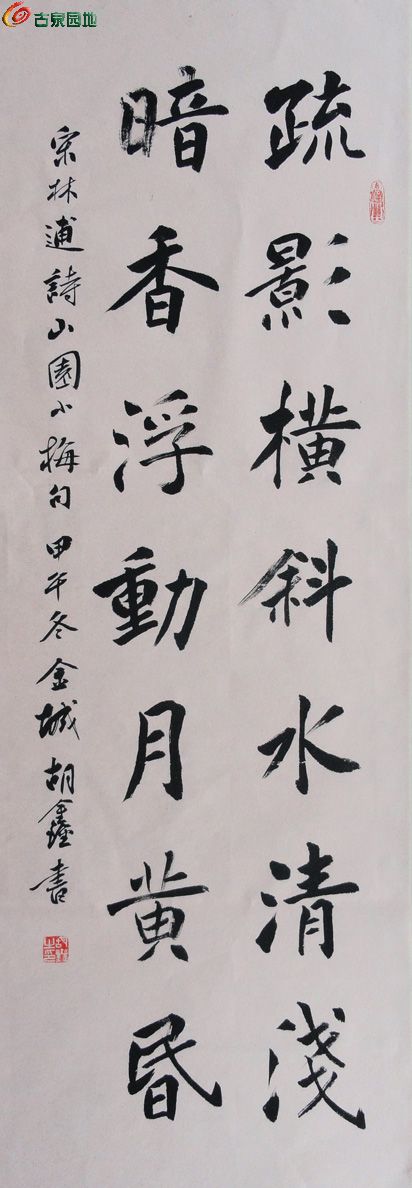 古泉园地
疏影橫斜水清淺
暗香浮動月黃昏
宋林逋詩山園小梅句 甲午冬金城胡鑫書